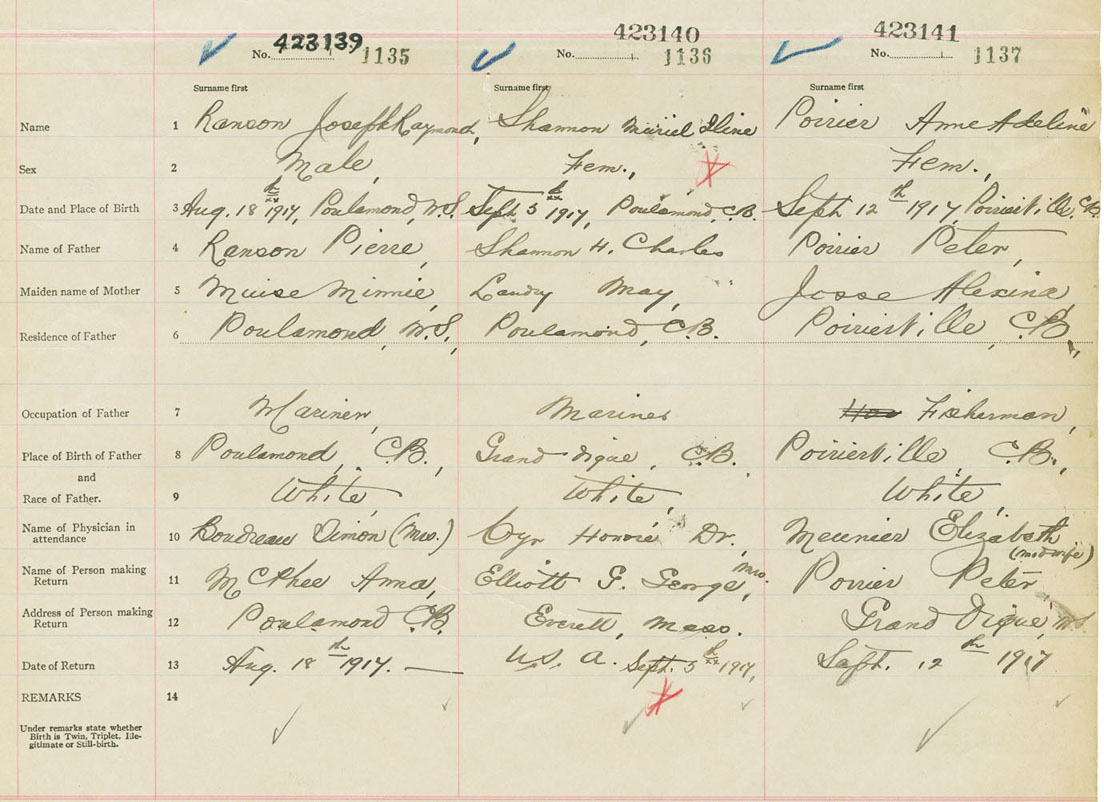 423139 423140 423141
No. 1135 No. 1136 No. 1137
Surname first Surname first Surname first
Name 1 Ranson Joseph Raymond, Shannon Muriel Iline Poirier Anne Adeline
Sex 2 Male, Fem., Fem.,
Date and Place of Birth 3 Aug. 18th 1917, Poulamond, N.S. Sept. 5th 1917, Poulamond, C.B. Sept 12th 1917, Poirierville, C.B.
Name of Father 4 Ranson Pierre, Shannon H. Charles Poirier Peter,
Maiden name of Mother 5 Muise Minnie, Landry May, Josse Alexina,
Residence of Father 6 Poulamond, N.S., Poulamond, C.B. Poirierville, C.B.,
Occupation of Father 7 Mariner, Mariner Fisherman,
Place of Birth of Father 8 Poulamond, C.B., Grand digue, C.B. Poirierville, C.B.,
and
Race of Father. 9 White, White, White,
Name of Physician in
attendance 10 Boudreau Simon (Mrs.) Cyr Honoré Dr., Meunier Elizabeth
(midwife)
Name of Person making
Return 11 McPhee Anna, Elliott G. George, Mrs. Poirier Peter,
Address of Person making
Return 12 Poulamond C.B. Everett, Mass. Grand Digue, N.S.
Date of Return 13 Aug. 18th 1917. — U.S.A. Sept. 5th 1917, Sept. 12th 1917
REMARKS 14
Under remarks state whether
Birth is Twin, Triplet, Ille-
gitimate or Still-birth.